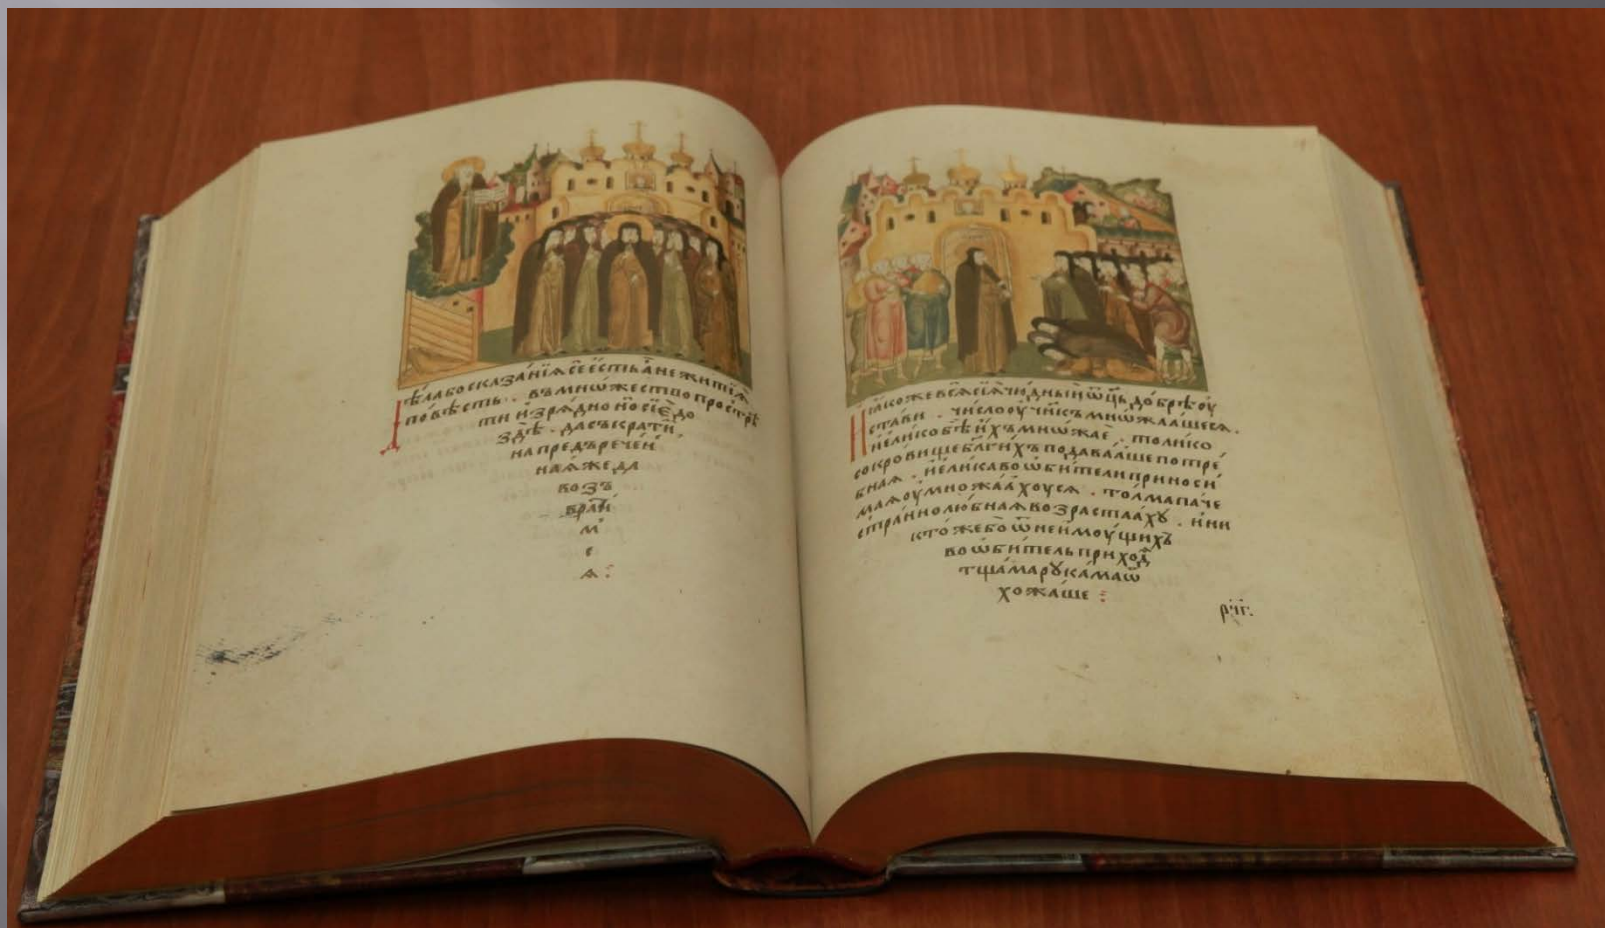 Дѣла бо сказанїѧ сѐ є҆́сть а҆ не житїѧ̀
по́вѣсть . въ мнѡ́жество простре́
ти и҆зрѧ́дно но сїѐ до
здѣ̀ . да съкрати́
на предъречен́
наѧ́же да
возъ
врати́
м̾
с
ѧ :
И҆ ꙗ҆́коже всѧ̑ сїѧ̑ чю́дный ѻ҆ц҃ъ до́брѣ оу҆
ста́ви . число̀ оу҆чн҃къ мнѡжаа́шесѧ .
и҆ є҆ли́ко бѣ̀ и҆́хъ мнѡ́жае . толи́ко
сокро́вище бл҃ги́хъ подава́аше потре́
бнаѧ . и҆ є҆ли́ка во ѡ҆би́тели приноси́
маѧ оу҆множа́ахоусѧ . то́лма па́че
страннолю́бнаѧ возраста́ахꙋ . и҆ ни
кто́же бо̀ ѿ неи҆моу́щихъ
во ѡ҆би́тель приход́
тща́ма рꙋка́ма ѿ
хожа́ше :
рч҃г.